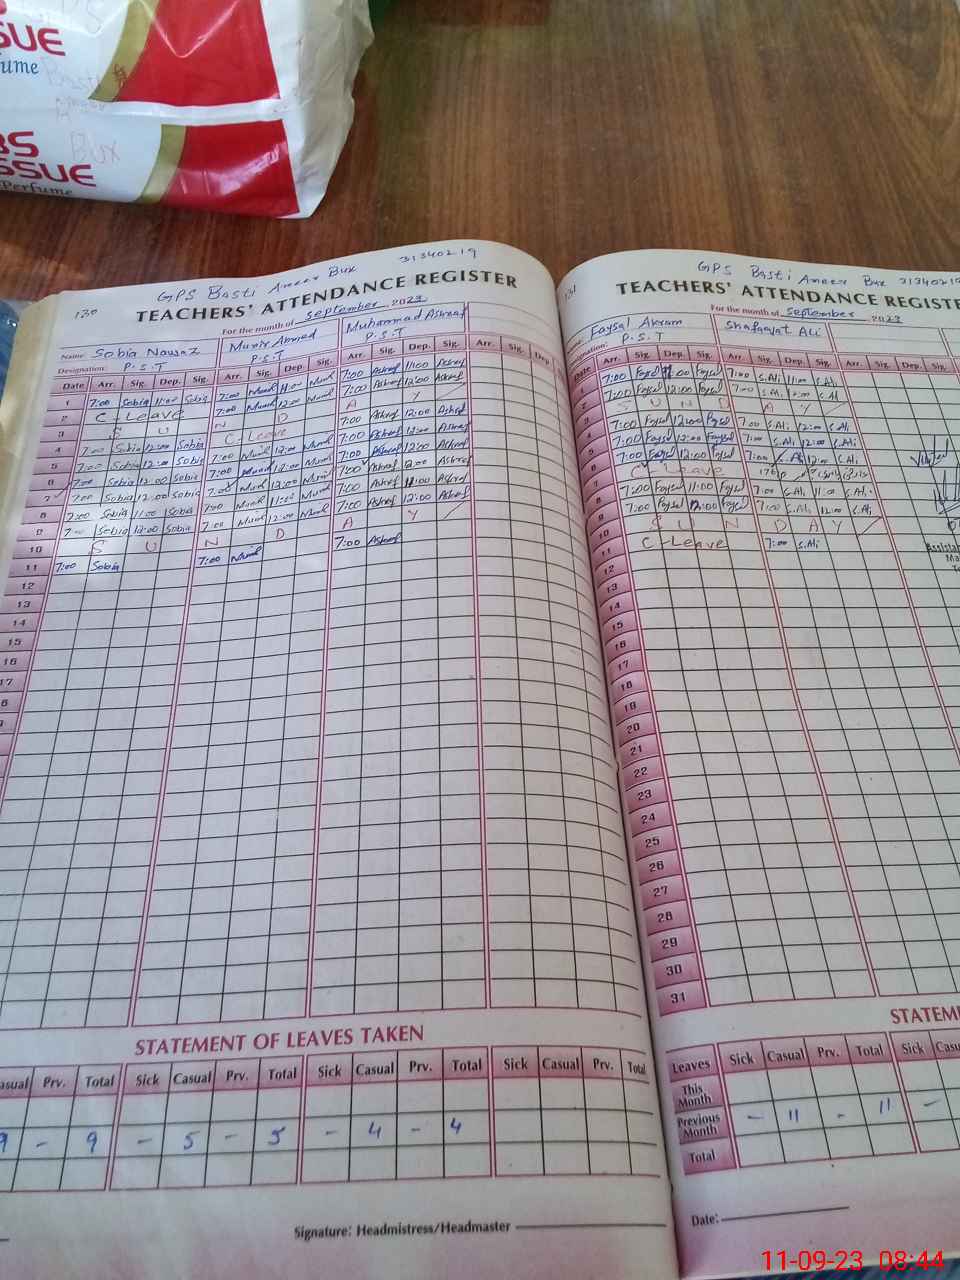 SSUE
Perfume
GPS Basti Ameer Bux 31340219
130
TEACHERS' ATTENDANCE REGISTER
For the month of September 2023
Name: Sobia Nawaz Munir Ahmed Muhammad Ashraf
Designation: P.S.T P.S.T P.S.T
Date Arr. Sig. Dep. Sig. Arr. Sig. Dep. Sig. Arr. Sig. Dep. Sig. Arr. Sig. Dep.
1 7:00 Sobia 11:00 Sobia 7:00 Munir 11:00 Munir 7:00 Ashraf 11:00 Ashraf
2 C-Leave 7:00 Munir 12:00 Munir 7:00 Ashraf 12:00 Ashraf
3 S U N D A Y
4 7:00 Sobia 12:00 Sobia C-Leave 7:00 Ashraf 12:00 Ashraf
5 7:00 Sobia 12:00 Sobia 7:00 Munir 12:00 Munir 7:00 Ashraf 12:00 Ashraf
6 7:00 Sobia 12:00 Sobia 7:00 Munir 12:00 Munir 7:00 Ashraf 12:00 Ashraf
7 7:00 Sobia 12:00 Sobia 7:00 Munir 12:00 Munir 7:00 Ashraf 12:00 Ashraf
8 7:00 Sobia 11:00 Sobia 7:00 Munir 11:00 Munir 7:00 Ashraf 11:00 Ashraf
9 7:00 Sobia 12:00 Sobia 7:00 Munir 12:00 Munir 7:00 Ashraf 12:00 Ashraf
10 S U N D A Y
11 7:00 Sobia 7:00 Munir 7:00 Ashraf
12
13
14
15
16
17
STATEMENT OF LEAVES TAKEN
Prv. Total Sick Casual Prv. Total Sick Casual Prv. Total Sick Casual Prv. Total
9 - 9 - 5 - 5 - 4 - 4
Signature: Headmistress/Headmaster
GPS Basti Ameer Bux 31340219
131
TEACHERS' ATTENDANCE REGISTE
For the month of September 2023
Faysal Akram Shafaqat Ali
Designation: P.S.T
Date Arr. Sig. Dep. Sig. Arr. Sig. Dep. Sig. Arr. Sig. Dep. Sig.
1 7:00 Faysal 11:00 Faysal 7:00 S.Ali 11:00 S.Ali
2 7:00 Faysal 12:00 Faysal 7:00 S.Ali 12:00 S.Ali
3 S U N D A Y
4 7:00 Faysal 12:00 Faysal 7:00 S.Ali 12:00 S.Ali
5 7:00 Faysal 12:00 Faysal 7:00 S.Ali 12:00 S.Ali
6 7:00 Faysal 12:00 Faysal 7:00 S.Ali 12:00 S.Ali
7 C-Leave
8 7:00 Faysal 11:00 Faysal 7:00 S.Ali 11:00 S.Ali
9 7:00 Faysal 12:00 Faysal 7:00 S.Ali 12:00 S.Ali
10 S U N D A Y
11 C-Leave 7:00 S.Ali
12
13
14
15
16
17
18
19
20
21
22
23
24
25
26
27
28
29
30
31
STATEM
Leaves Sick Casual Prv. Total Sick
This Month
Previous Month - 11 - 11 -
Total
Date:
11-09-23 08:44